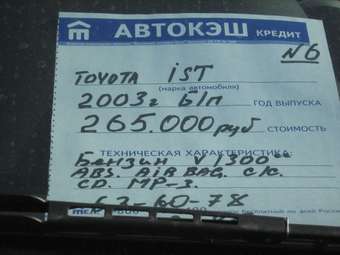 АВТОКЭШ КРЕДИТ
N6
TOYOTA iST
(марка автомобиля)
2003г Б/П ГОД ВЫПУСКА
265.000руб СТОИМОСТЬ
ТЕХНИЧЕСКАЯ ХАРАКТЕРИСТИКА:
Бензин V1300
ABS. AIR BAG. С/С.
CD. MP-3.
62-60-78